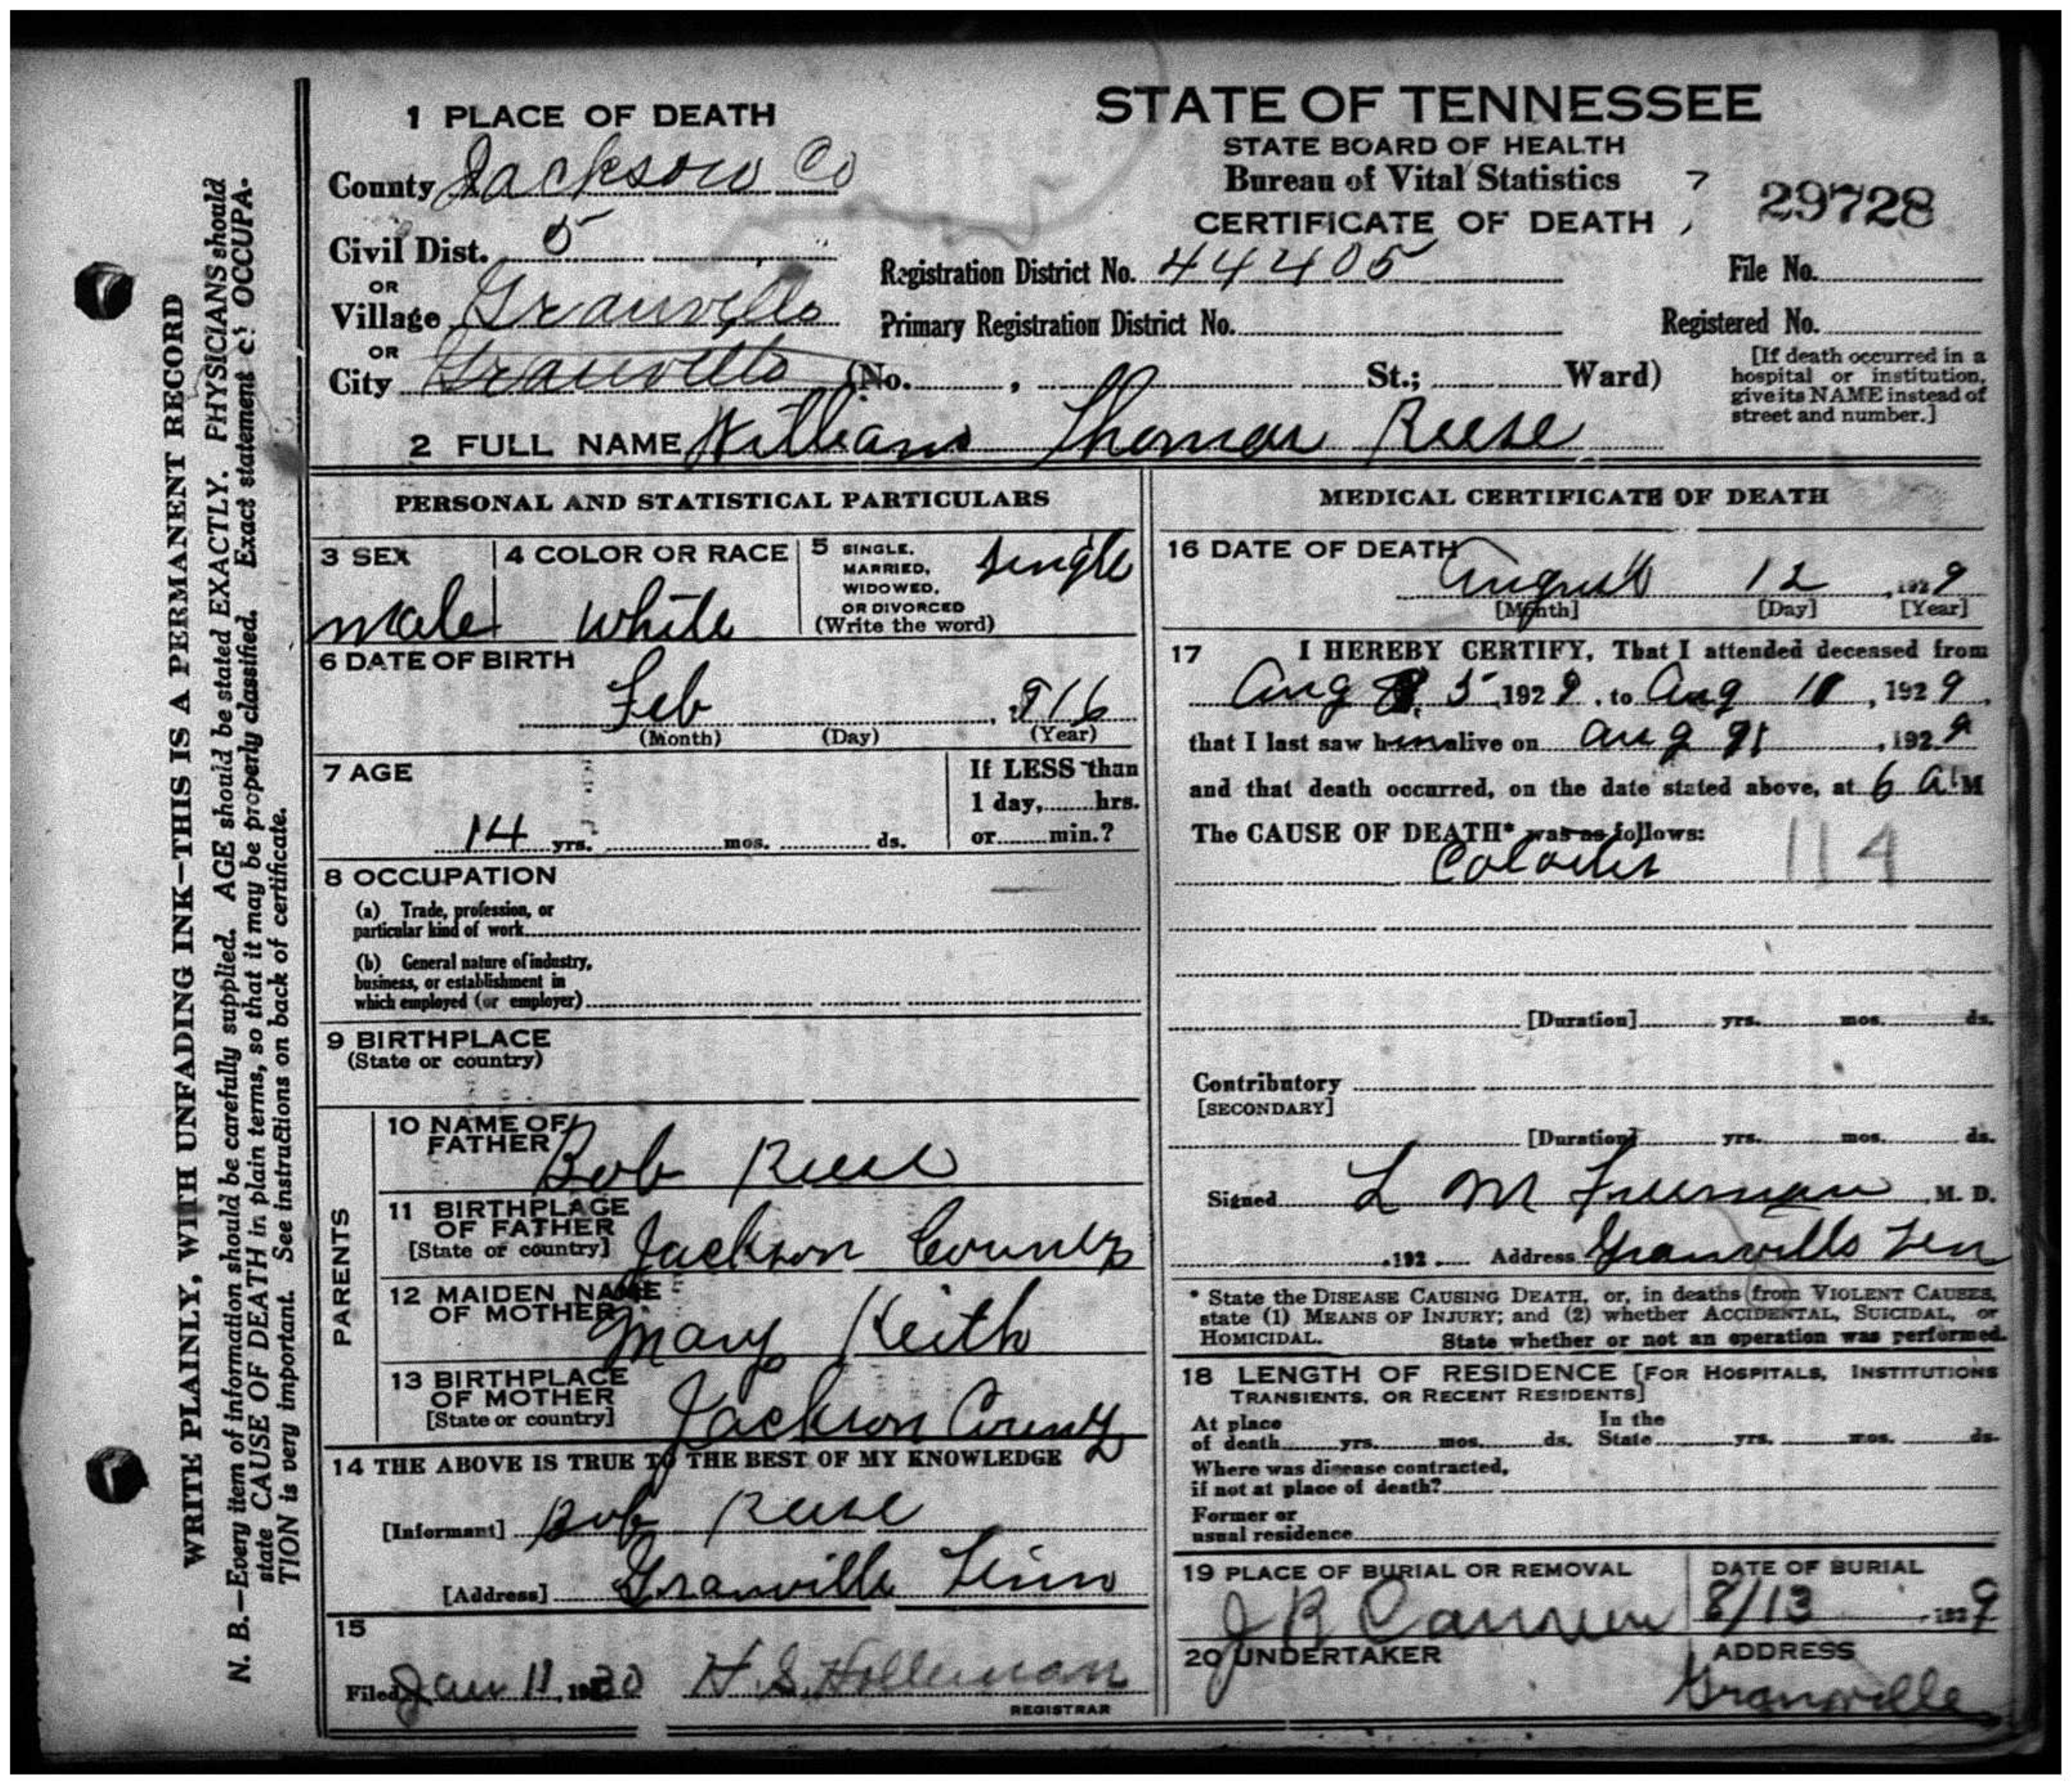 WRITE PLAINLY, WITH UNFADING INK—THIS IS A PERMANENT RECORD
N. B.—Every item of information should be carefully supplied. AGE should be stated EXACTLY. PHYSICIANS should
state CAUSE OF DEATH in plain terms, so that it may be properly classified. Exact statement of OCCUPA-
TION is very important. See instructions on back of certificate.
1 PLACE OF DEATH
County Jackson Co
Civil Dist. 5
OR
Village Granville
OR
City Granville (No. , St.; Ward)
STATE OF TENNESSEE
STATE BOARD OF HEALTH
Bureau of Vital Statistics
CERTIFICATE OF DEATH
7
29728
Registration District No. 44405
File No.
Primary Registration District No.
Registered No.
[If death occurred in a
hospital or institution,
give its NAME instead of
street and number.]
2 FULL NAME William Thomas Reese
PERSONAL AND STATISTICAL PARTICULARS
3 SEX
male
4 COLOR OR RACE
White
5 SINGLE,
MARRIED,
WIDOWED,
OR DIVORCED
(Write the word)
single
6 DATE OF BIRTH
Feb 916
(Month) (Day) (Year)
7 AGE
14 yrs. mos. ds.
If LESS than
1 day, hrs.
or min.?
8 OCCUPATION
(a) Trade, profession, or
particular kind of work
(b) General nature of industry,
business, or establishment in
which employed (or employer)
9 BIRTHPLACE
(State or country)
PARENTS
10 NAME OF
FATHER Bob Reese
11 BIRTHPLACE
OF FATHER
[State or country] Jackson County
12 MAIDEN NAME
OF MOTHER Mary Keith
13 BIRTHPLACE
OF MOTHER
[State or country] Jackson County
14 THE ABOVE IS TRUE TO THE BEST OF MY KNOWLEDGE
[Informant] Bob Reese
[Address] Granville Tinn
15
Filed Jan 11, 1930 H. S. Holleman
REGISTRAR
MEDICAL CERTIFICATE OF DEATH
16 DATE OF DEATH
August 12, 1929
[Month] [Day] [Year]
17 I HEREBY CERTIFY, That I attended deceased from
Aug 5 1929, to Aug 11, 1929,
that I last saw him alive on Aug , 1929
and that death occurred, on the date stated above, at 6 A. M
The CAUSE OF DEATH* was as follows:
114
[Duration] yrs. mos. ds.
Contributory
[SECONDARY]
[Duration] yrs. mos. ds.
Signed L M Freeman, M. D.
, 192 Address Granville Ten
* State the DISEASE CAUSING DEATH, or, in deaths from VIOLENT CAUSES,
state (1) MEANS OF INJURY; and (2) whether ACCIDENTAL, SUICIDAL, or
HOMICIDAL. State whether or not an operation was performed.
18 LENGTH OF RESIDENCE [FOR HOSPITALS, INSTITUTIONS
TRANSIENTS, OR RECENT RESIDENTS]
At place
of death yrs. mos. ds.
In the
State yrs. mos. ds.
Where was disease contracted,
if not at place of death?
Former or
usual residence
19 PLACE OF BURIAL OR REMOVAL
DATE OF BURIAL
8/13, 1929
20 UNDERTAKER
J R
ADDRESS
Granville